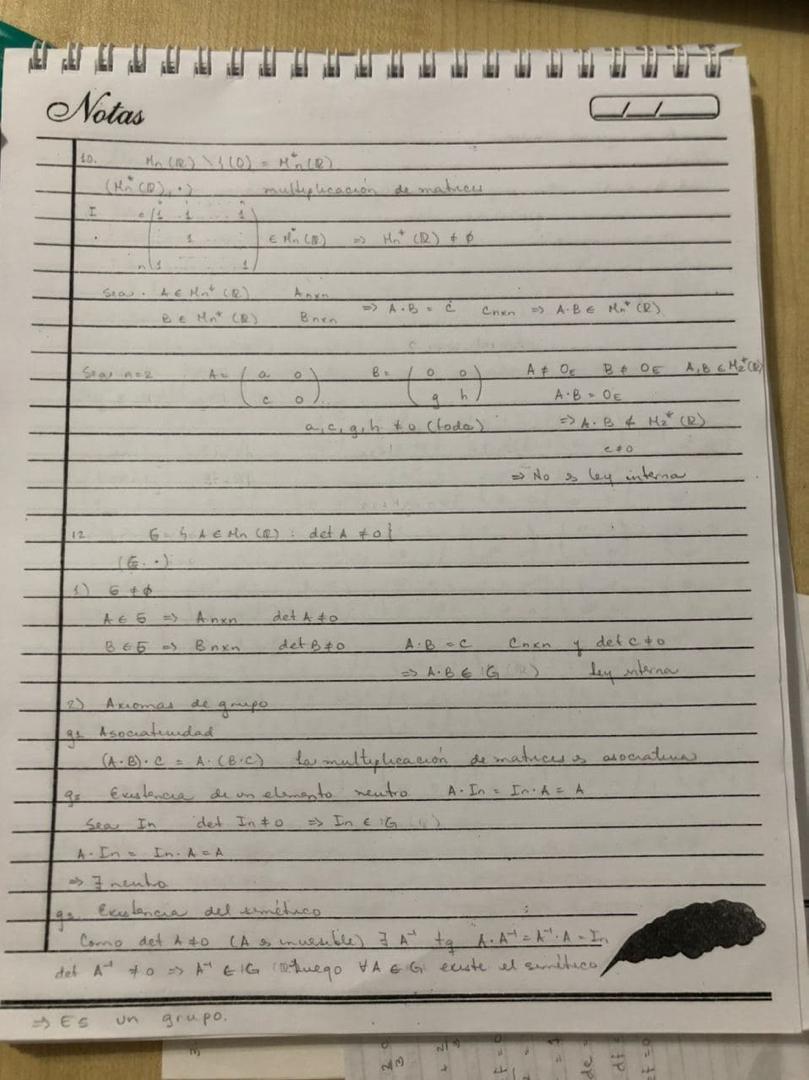 Notas
10. Mn(ℝ) \ {0} = M*n(ℝ)
(Mn*(ℝ), ·) multiplicación de matrices
I = (1 1 ... 1
1 ∈ Mn*(ℝ) ⇒ Mn*(ℝ) ≠ ∅
n 1 ... 1)
Sea · A ∈ Mn*(ℝ) Anxn
B ∈ Mn*(ℝ) Bnxn ⇒ A·B = C Cnxn ⇒ A·B ∈ Mn*(ℝ)
Sea n=2 A = (a 0 B = (0 0 A ≠ 0E B ≠ 0E A,B ∈ M2*(ℝ)
c 0) g h) A·B = 0E
a,c,g,h ≠ 0 (todos) ⇒ A·B ∉ M2*(ℝ)
c≠0
⇒ No es ley interna
12 G = { A ∈ Mn(ℝ) : det A ≠ 0}
(G, ·)
1) G ≠ ∅
A ∈ G ⇒ Anxn det A ≠ 0
B ∈ G ⇒ Bnxn det B ≠ 0 A·B = C Cnxn y det C ≠ 0
⇒ A·B ∈ G ley interna
2) Axiomas de grupo
g1 Asociatividad
(A·B)·C = A·(B·C) La multiplicación de matrices es asociativa
g2 Existencia de un elemento neutro A·In = In·A = A
Sea In det In ≠ 0 ⇒ In ∈ G
A·In = In·A = A
⇒ ∃ neutro
g3 Existencia del simétrico
Como det A ≠ 0 (A es invertible) ∃ A⁻¹ tq A·A⁻¹ = A⁻¹·A = In
det A⁻¹ ≠ 0 ⇒ A⁻¹ ∈ G luego ∀A ∈ G existe el simétrico
⇒ ES un grupo.